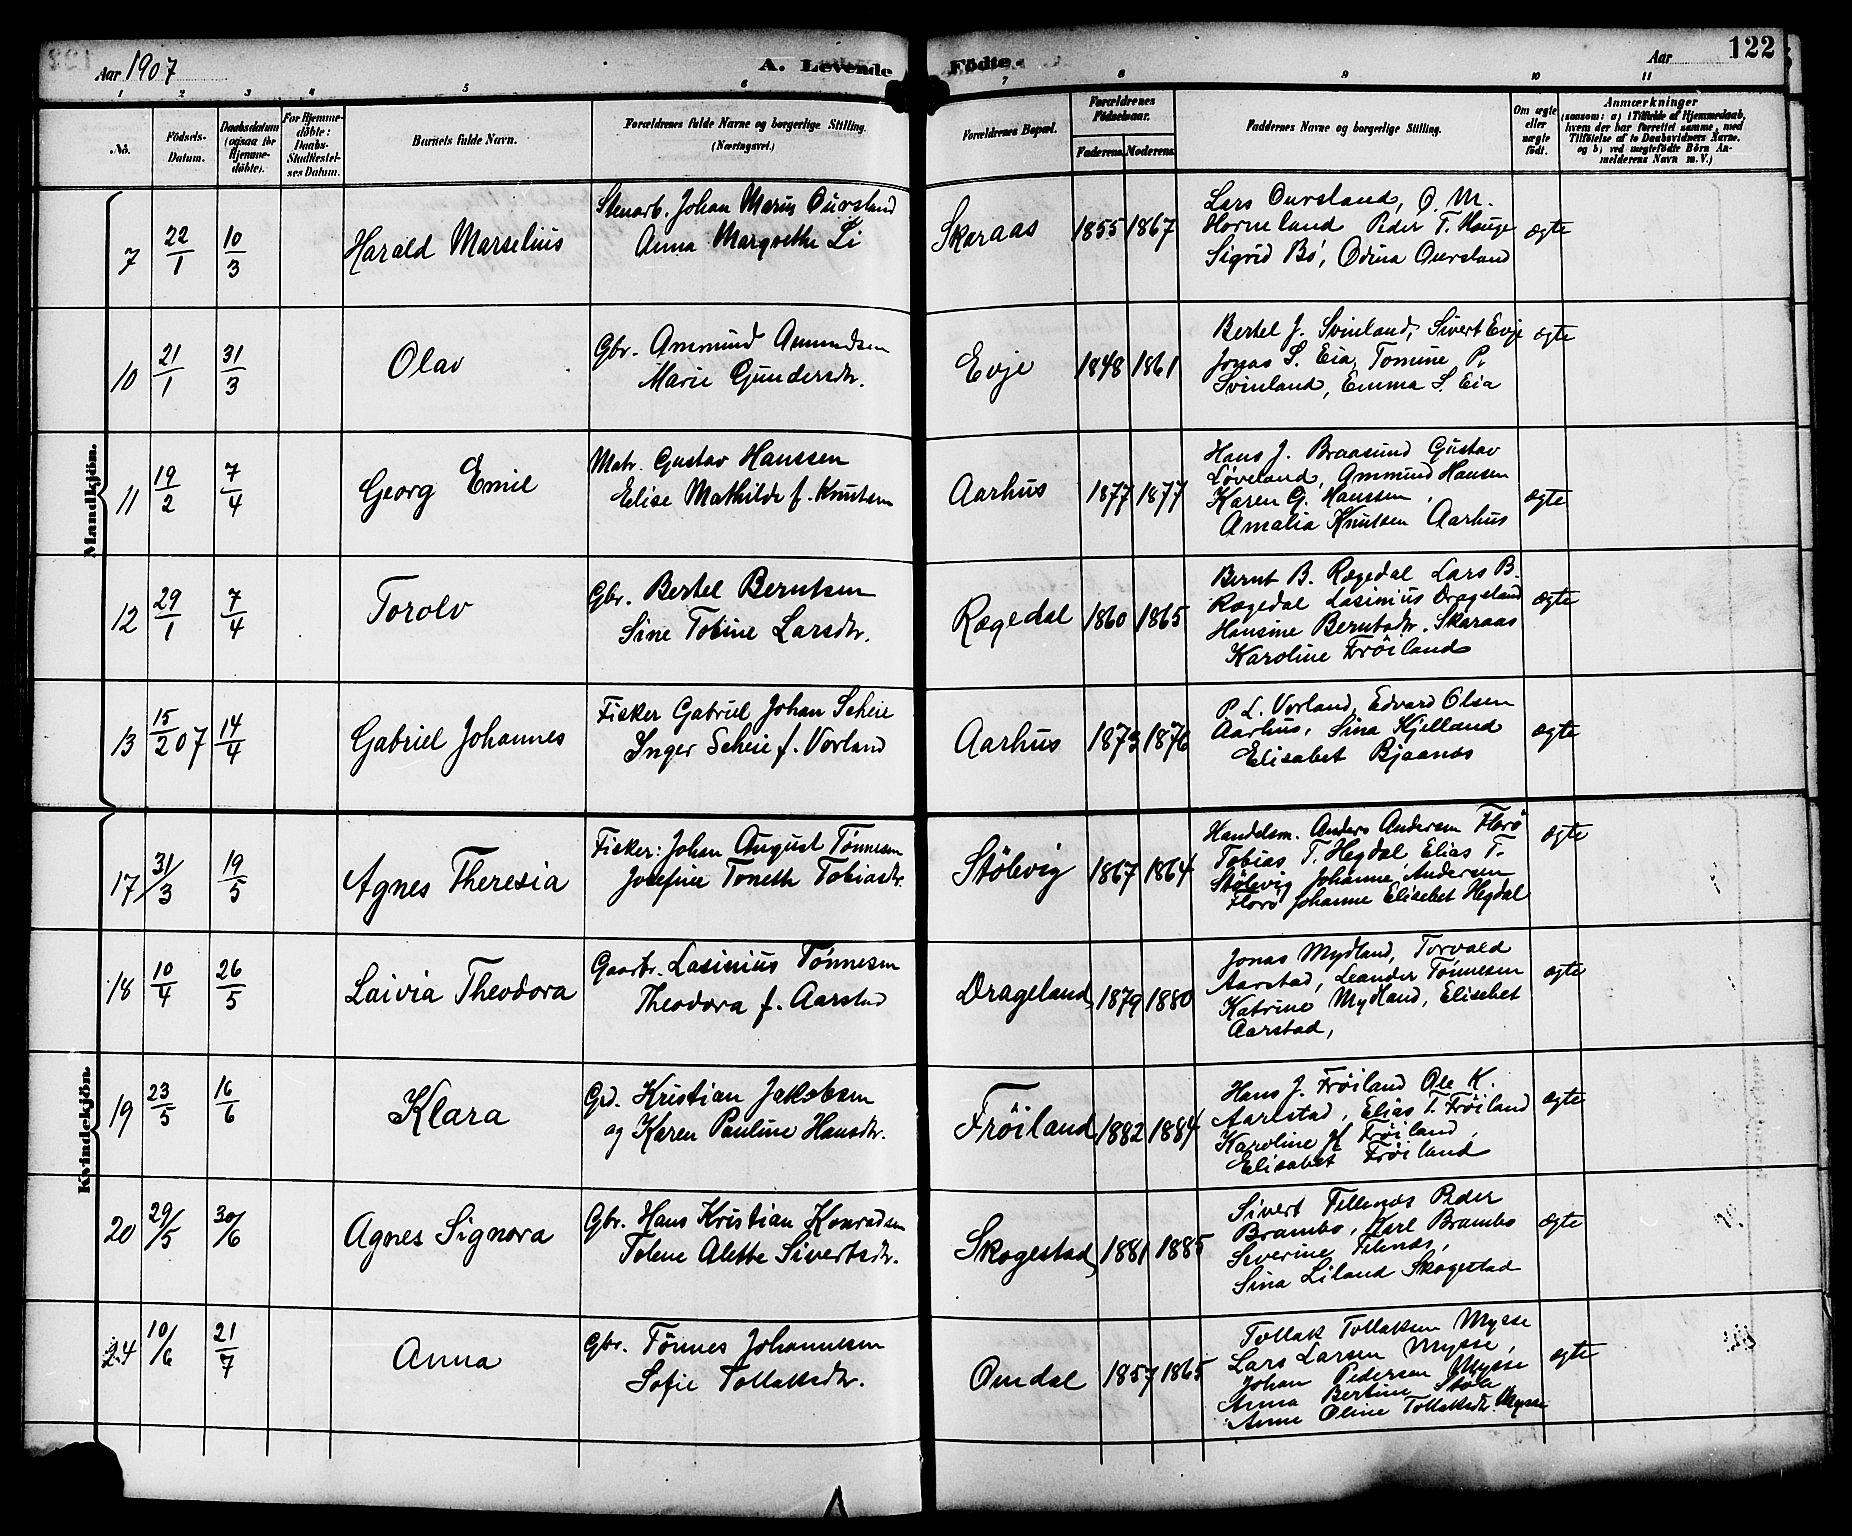 Aar 1907
A. Levende Födte.
Aar
122
1 2 3 4 5 6 7 8 9 10 11
No.
Födsels-Datum.
Daabsdatum (ogsaa for Hjemmedöbte).
For Hjemmedöbte: Daabs-Stadfæstelses Datum.
Barnets fulde Navn.
Forældrenes fulde Navne og borgerlige Stilling. (Næringsvei.)
Forældrenes Bopæl.
Forældrenes Födselsaar.
Faderens. Moderens.
Faddernes Navne og borgerlige Stilling.
Om ægte eller uægte födt.
Anmærkninger
(saasom: a) i Tilfælde af Hjemmedaab, hvem der har forrettet samme, med Tilföielse af to Daabsvidners Navne, og b) ved uægtefödte Börn Anmelderens Navn m. V.)
Mandkjön.
7 22/1 10/3 Harald Marselius
Stenarb. Johan Marius Oursland
Anna Margrethe Li
Skaraas 1855 1867
Lars Oursland, O. M.
Horneland Peder T. Hauge
Sigrid Bö, Odina Oursland
ægte
10 21/1 31/3 Olav
Gbr. Ammund Amundsen
Marie Gundersdtr.
Evje 1848 1861
Bertel J. Svinland, Sivert Evje
Jonas S. Eia, Tomine P.
Svinland, Emma S. Eia
ægte
11 19/2 7/4 Georg Emil
Matr. Gustav Hanssen
Elise Mathilde f. Knutsen
Aarhus 1877 1877
Hans J. Braasund Gustav
Løveland, Ammund Hansen
Karen G. Hanssen,
Amalia Knutsen Aarhus
ægte
12 29/1 7/4 Torolv
Gbr. Bertel Berntsen
Sine Tobine Larsdtr.
Rægedal 1860 1865
Bernt B. Rægedal Lars B.
Rægedal Lasinius Drageland
Hansine Berntsdtr. Skaraas
Karoline Frøiland
ægte
13 15/2 07 14/4 Gabriel Johannes
Fisker Gabriel Johan Scheie
Inger Scheie f. Vorland
Aarhus 1873 1876
P. L. Vorland, Edvard Olsen
Aarhus, Sina Kjelland
Elisabet Bjaanes
ægte
Kvindekjön.
17 31/3 19/5 Agnes Theresia
Fisker: Johan August Tønnesen
Josefine Toneth Tobiasdtr.
Stölevig 1867 1864
Handelsm. Anders Andersen Florö
Tobias T. Hegdal, Elias T.
Stölevig Johanne Andersen
Florö Johanne Elisebet Hegdal
ægte
18 10/4 26/5 Laivia Theodora
Gaarbr. Lasinius Tönnesen
Theodora f. Aarstad
Drageland 1879 1880
Jonas Mydland, Torvald
Aarstad, Leander Tønnesen
Katrine Mydland, Elisebet
Aarstad,
ægte
19 23/5 16/6 Klara
Gd. Kristian Jakobsen
og Karen Pauline Hansdtr.
Frøiland 1882 1884
Hans J. Frøiland Ole K.
Aarstad, Elias T. Frøiland
Karoline H Frøiland,
Elisabet Frøiland
ægte
20 29/5 30/6 Agnes Signora
Gbr. Hans Kristian Konradsen
Tolene Alette Sivertsdtr.
Skogestad 1881 1885
Sivert Fillenæs Peder
Brambo, Karl Brambo
Severine Filenæs,
Sina Liland Skogestad
ægte
24 10/6 21/7 Anna
Gbr. Tønnes Johannesen
Sofie Tollaksdtr.
Omdal 1857 1865
Tollak Tollaksen Mysse
Lars Larsen Mysse,
Johan Pedersen Mysse
Anna Bertine Støle
Anne Oline Tollaksdtr. Mysse
ægte